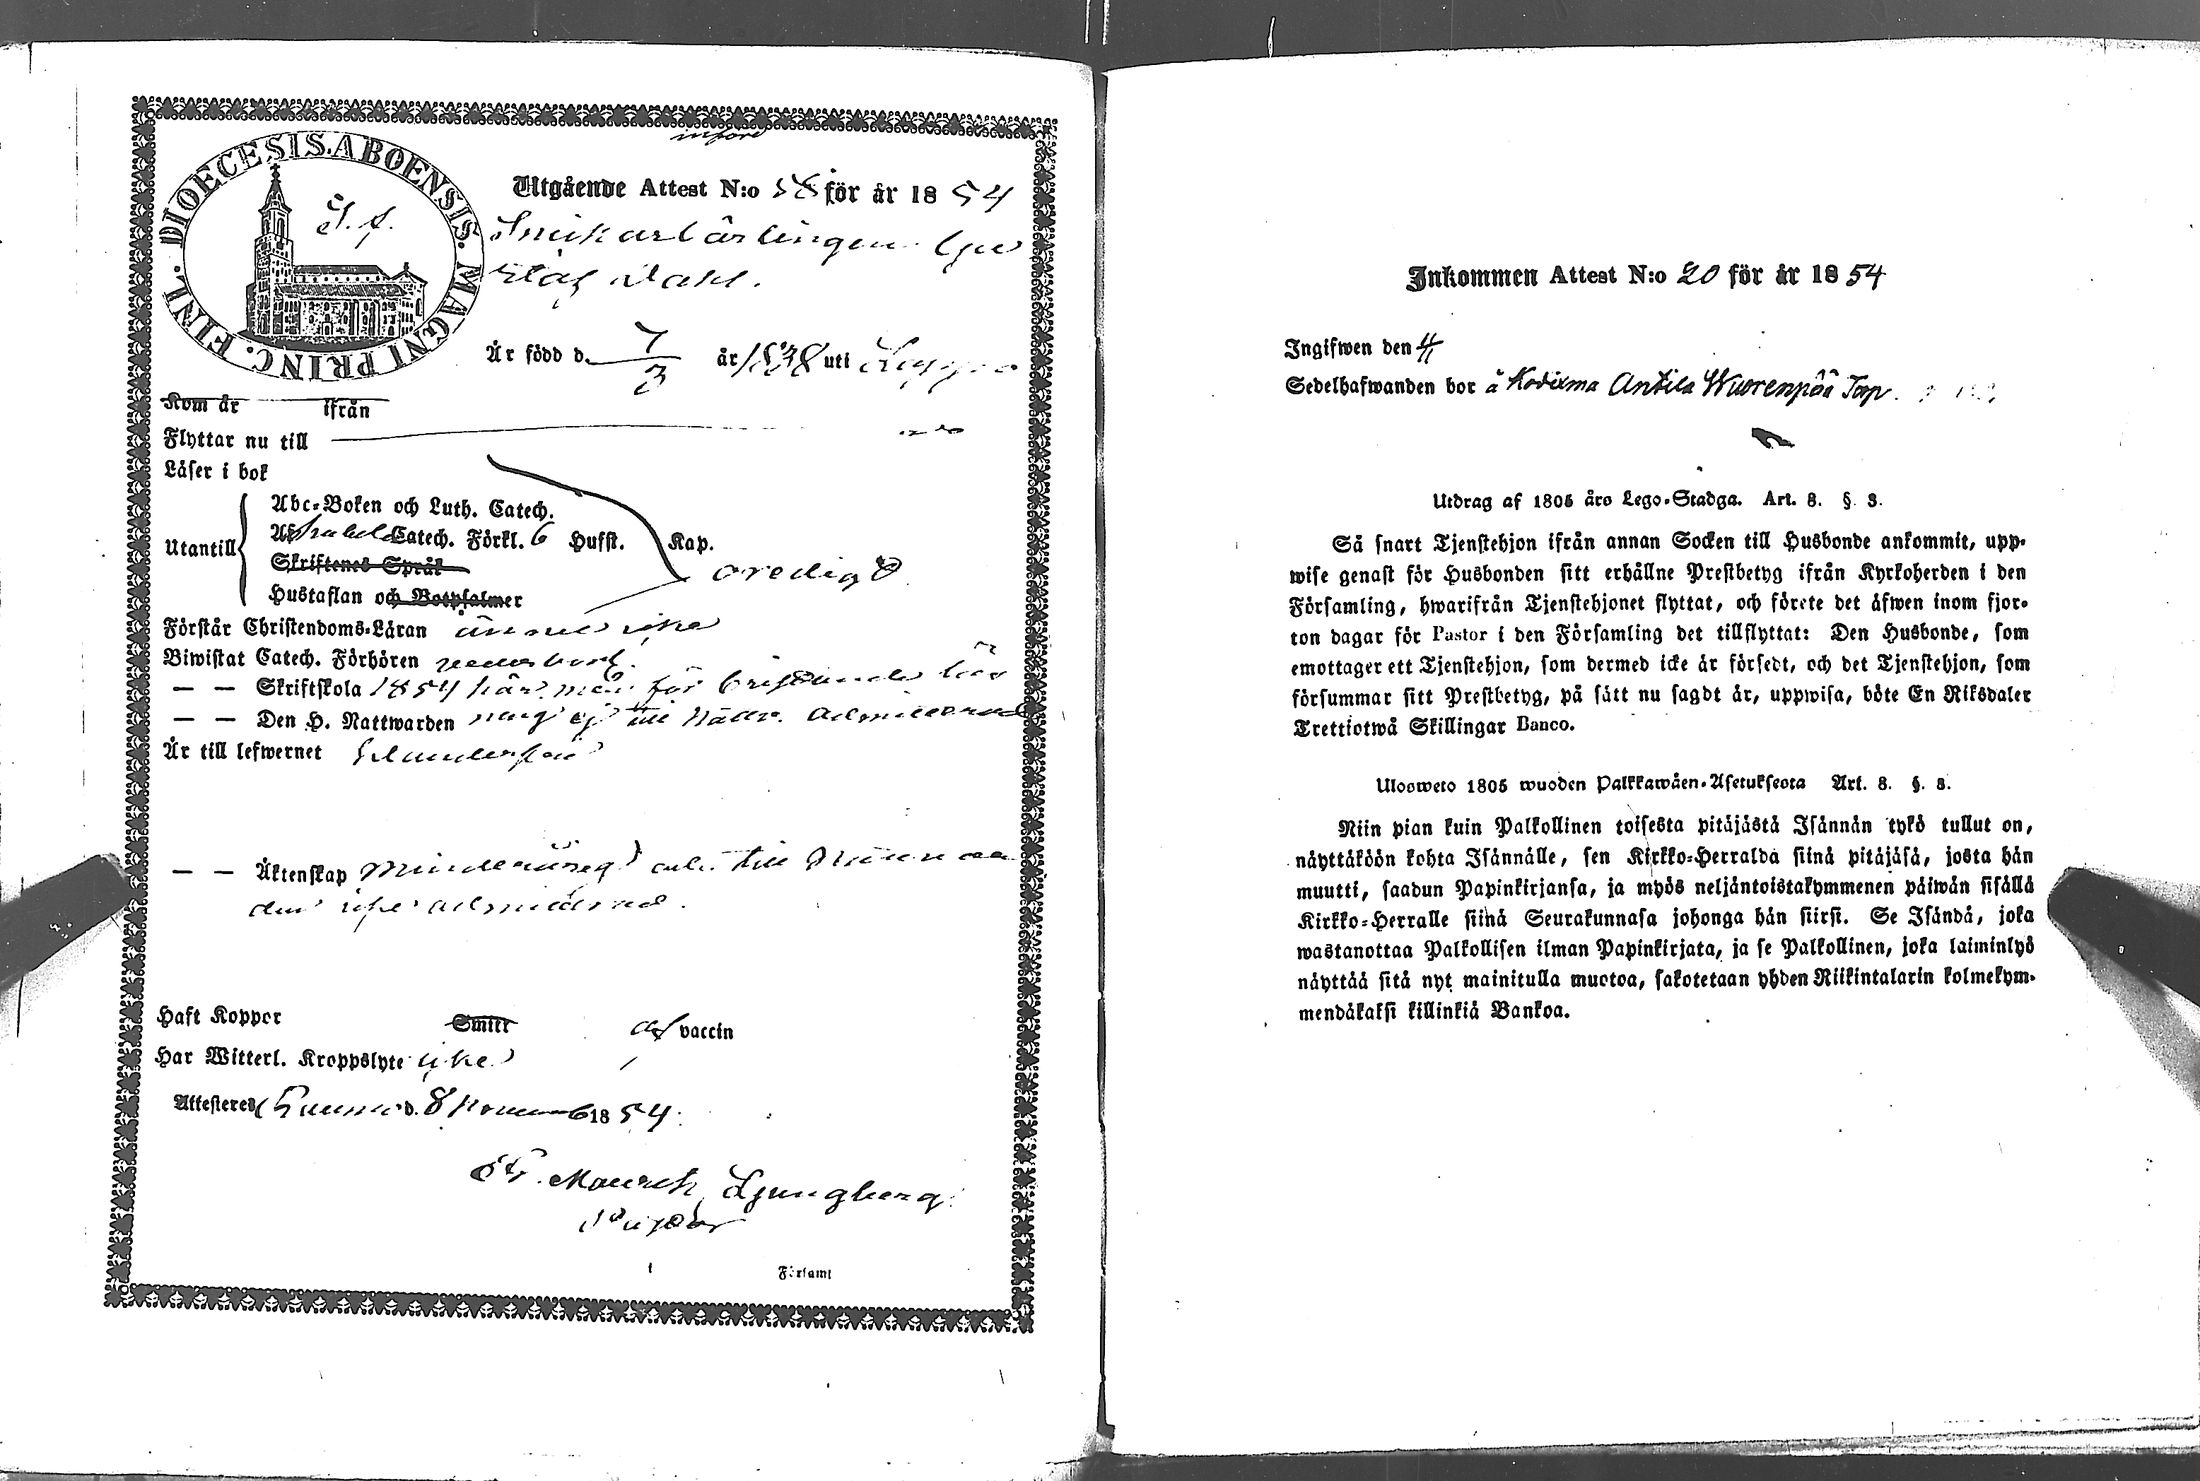 införd
DIOECESIS. ABOENSIS. MAGNI PRINC. FINL.
Utgående Attest N:o 58 för år 1854
Snickarlärlingen Gu
staf Dahl.
Är född d. 7/3 år 1838 uti
Kom år ifrån
Flyttar nu till
Läser i bok
Utantill
Abc-Boken och Luth. Catech.
Catech. Förkl. 6 Husst. Kap.
Skriftenes Språk
oredigt
Hustaflan och Botpsalmer
Förstår Christendoms-Läran ännu icke
Biwistat Catech. Förhören
— — Skriftskola 1854 här, men för bristande
— — Den H. Nattwarden ej till admitterad
Är till lefwernet
— — Äktenskap Minderårig och till
den icke admitterad.
Haft Koppor Smitt af vaccin
Har Witterl. Kroppslyte icke
Attesteras d. 8 Novemb 1854.
Ljungberg
Pastor
i Församl
Inkommen Attest N:o 20 för år 1854
Ingifwen den
Sedelhafwanden bor å Kodixma Antila Wuorenpää
Utdrag af 1805 års Lego-Stadga. Art. 8. §. 3.
Så snart Tjenstehjon ifrån annan Socken till Husbonde ankommit, upp-
wise genast för Husbonden sitt erhållne Prestbetyg ifrån Kyrkoherden i den
Församling, hwarifrån Tjenstehjonet flyttat, och förete det äfwen inom fjor-
ton dagar för Pastor i den Församling det tillflyttat: Den Husbonde, som
emottager ett Tjenstehjon, som dermed icke är försedt, och det Tjenstehjon, som
försummar sitt Prestbetyg, på sätt nu sagdt är, uppwisa, böte En Riksdaler
Trettiotwå Skillingar Banco.
Ulosweto 1805 wuoden Palkkawäen-Asetuksesta Art. 8. §. 3.
Niin pian kuin Palkollinen toisesta pitäjästä Isännän tykö tullut on,
näyttäköön kohta Isännälle, sen Kirkko-Herralda siinä pitäjäsä, josta hän
muutti, saadun Papinkirjansa, ja myös neljäntoistakymmenen päiwän sisällä
Kirkko-Herralle siinä Seurakunnasa johonga hän siirsi. Se Isändä, joka
wastanottaa Palkollisen ilman Papinkirjata, ja se Palkollinen, joka laiminlyö
näyttää sitä nyt mainitulla muotoa, sakotetaan yhden Riikintalarin kolmekym-
mendäkaksi killinkiä Bankoa.